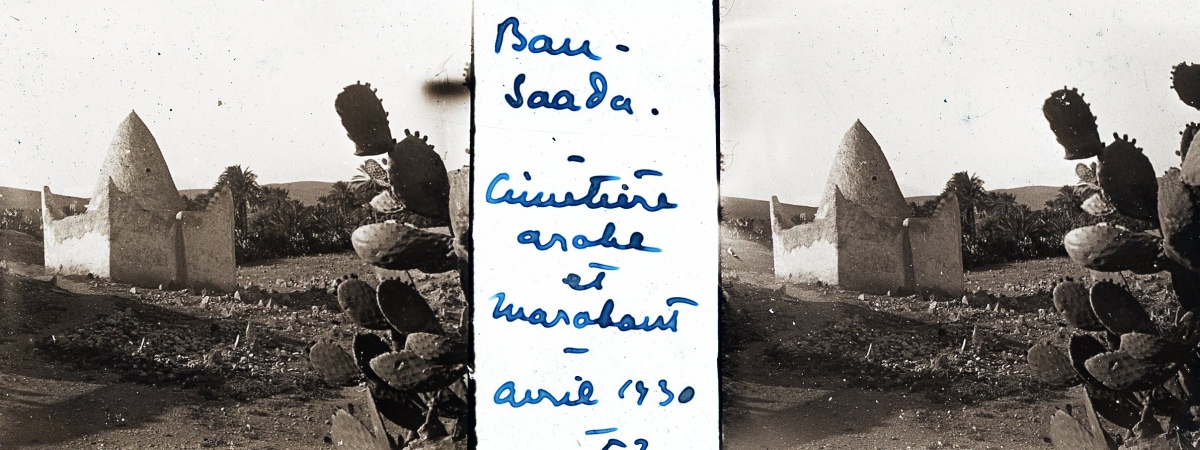 Bou-
Saada.
-
Cimetière
arabe
et
Marabout
-
avril 1930
-